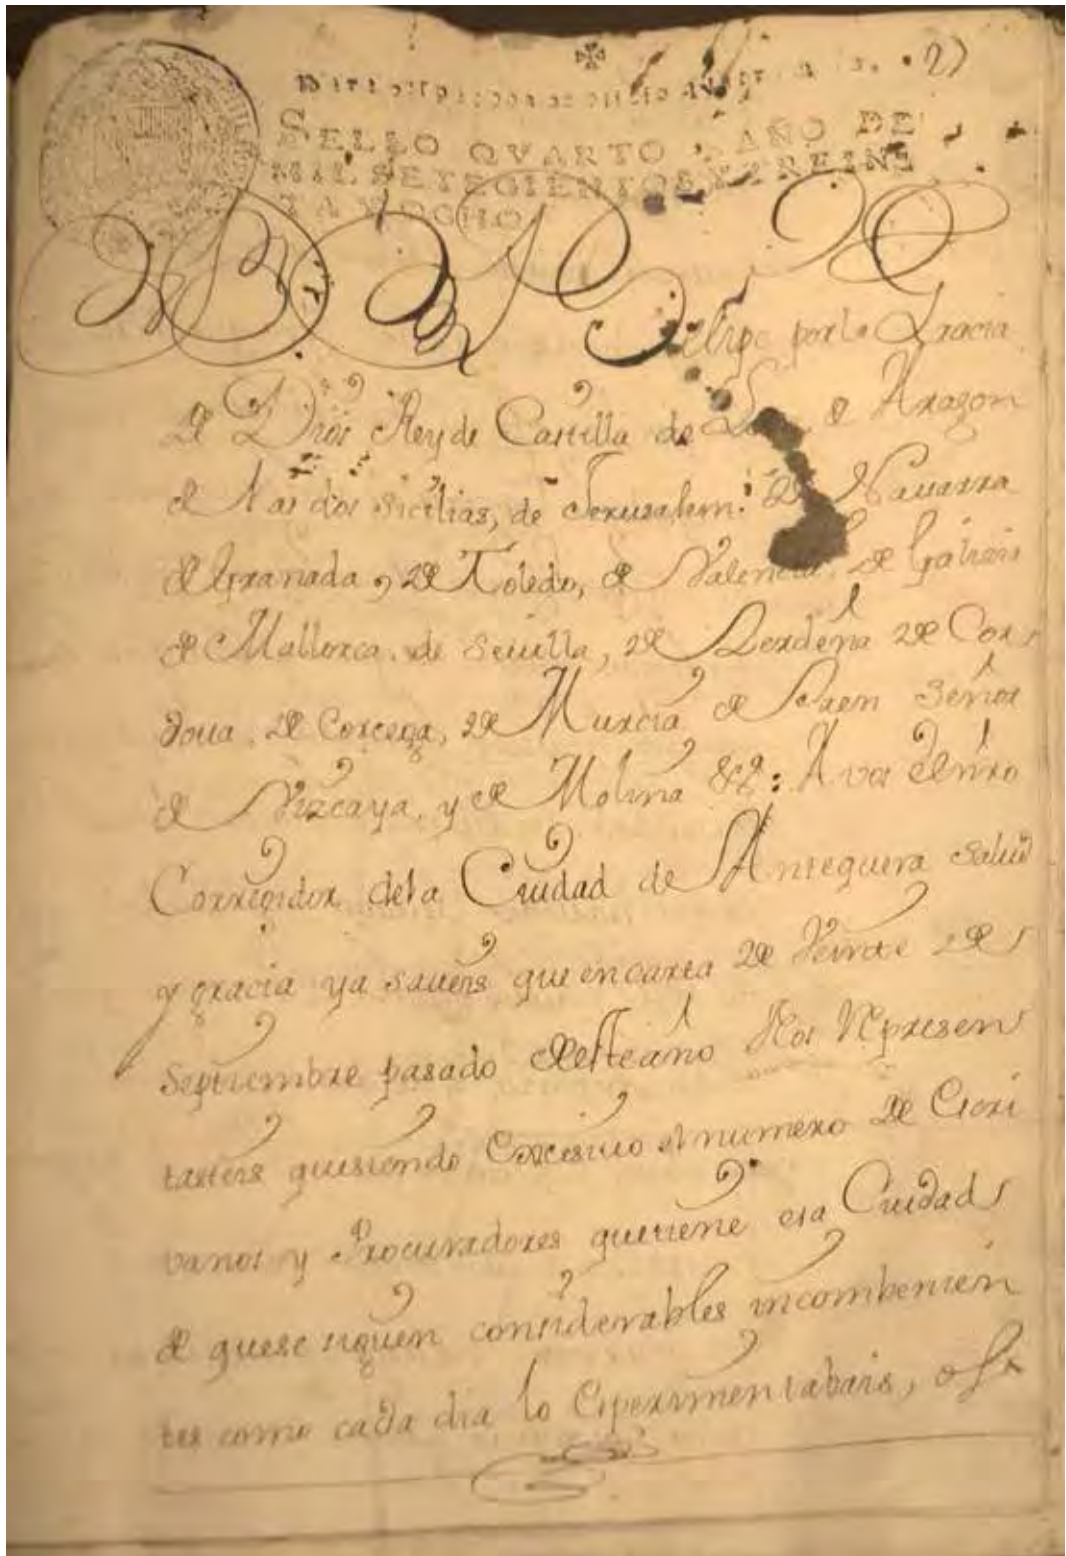 SELLO QVARTO, AÑO DE
MIL SETECIENTOS Y TREIN
TA Y OCHO
Phelipe por la Gracia
de Dios Rey de Castilla de Leon de Aragon
de las dos Sicilias, de Jerusalem. de Nauarra
de Granada, de Toledo, de Valencia, de Galicia
de Mallorca, de Seuilla, de Serdeña de Cor
doua, de Corcega, de Murcia de Jaen Señor
de Vizcaya, y de Molina &c: A vos el nro
Corregidor dela Ciudad de Antequera Salud
y gracia ya saueis que en carta de Veinte de
Septiembre pasado de este año Nos Represen
tasteis que siendo Excesiuo el numero de Escri
vanos y Procuradores que tiene esa Ciudad
de que se siguen considerables incombenien
tes como cada dia lo Experimentabais,